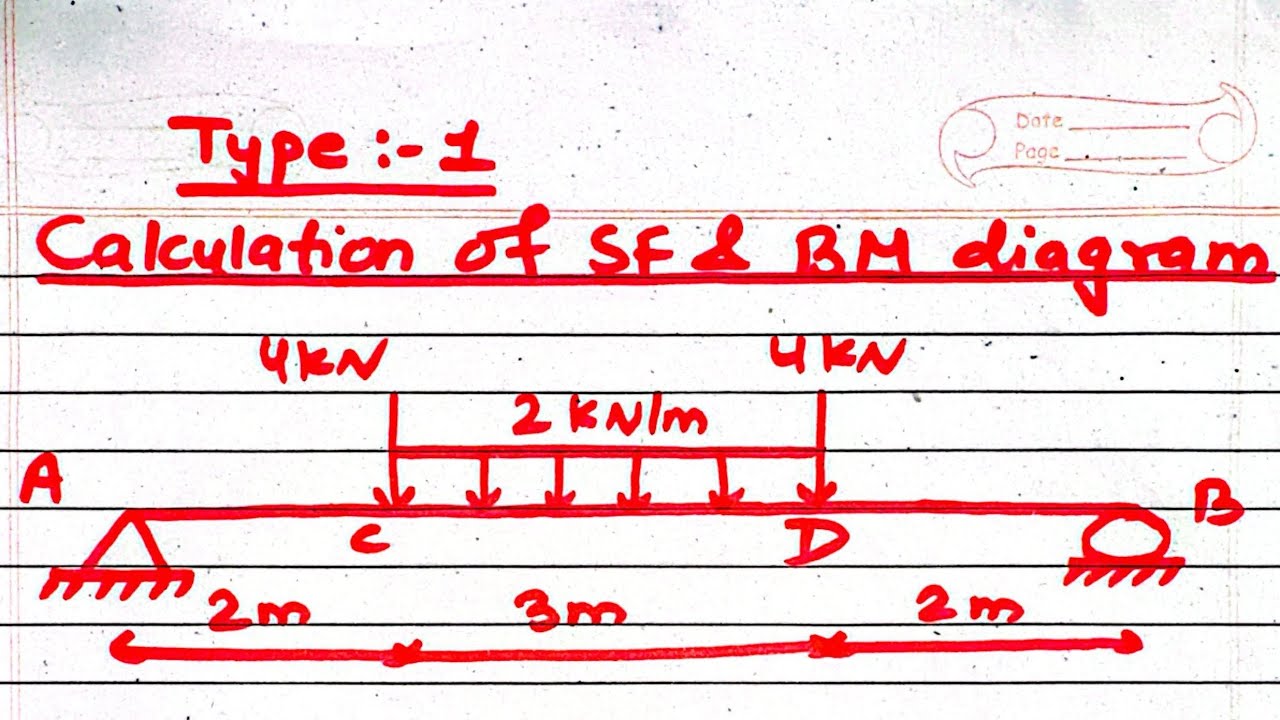 Date
Page
Type :- 1
Calculation of SF & BM diagram
4kN 4kN
2 kN/m
A B
C D
2m 3m 2m